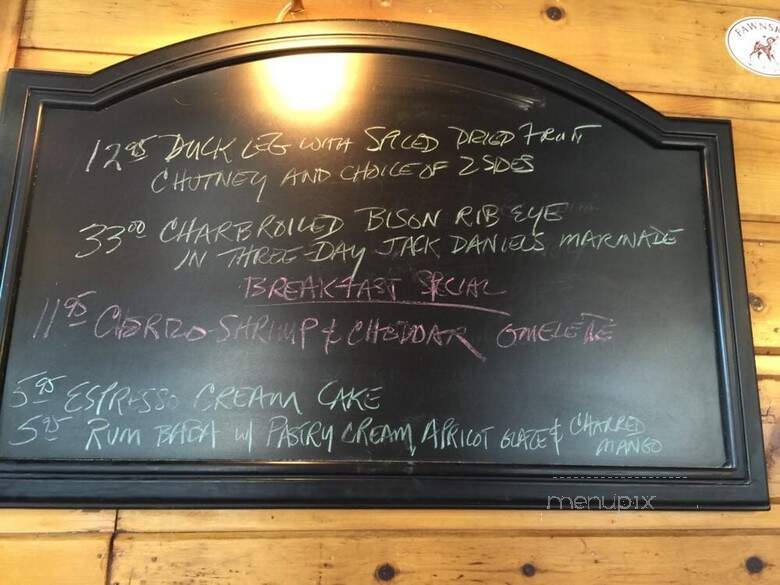 FAWNSK
12 95 DUCK LEG WITH SPICED DRIED FRUIT
CHUTNEY AND CHOICE OF 2 SIDES
33 00 CHARBROILED BISON RIB EYE
IN THREE-DAY JACK DANIELS MARINADE
BREAKFAST SPECIAL
11 95 CHORIZO SHRIMP & CHEDDAR OMELETTE
5 95 ESPRESSO CREAM CAKE
5 95 RUM BABA W/ PASTRY CREAM, APRICOT GLAZE & CHARRED
MANGO
menupix